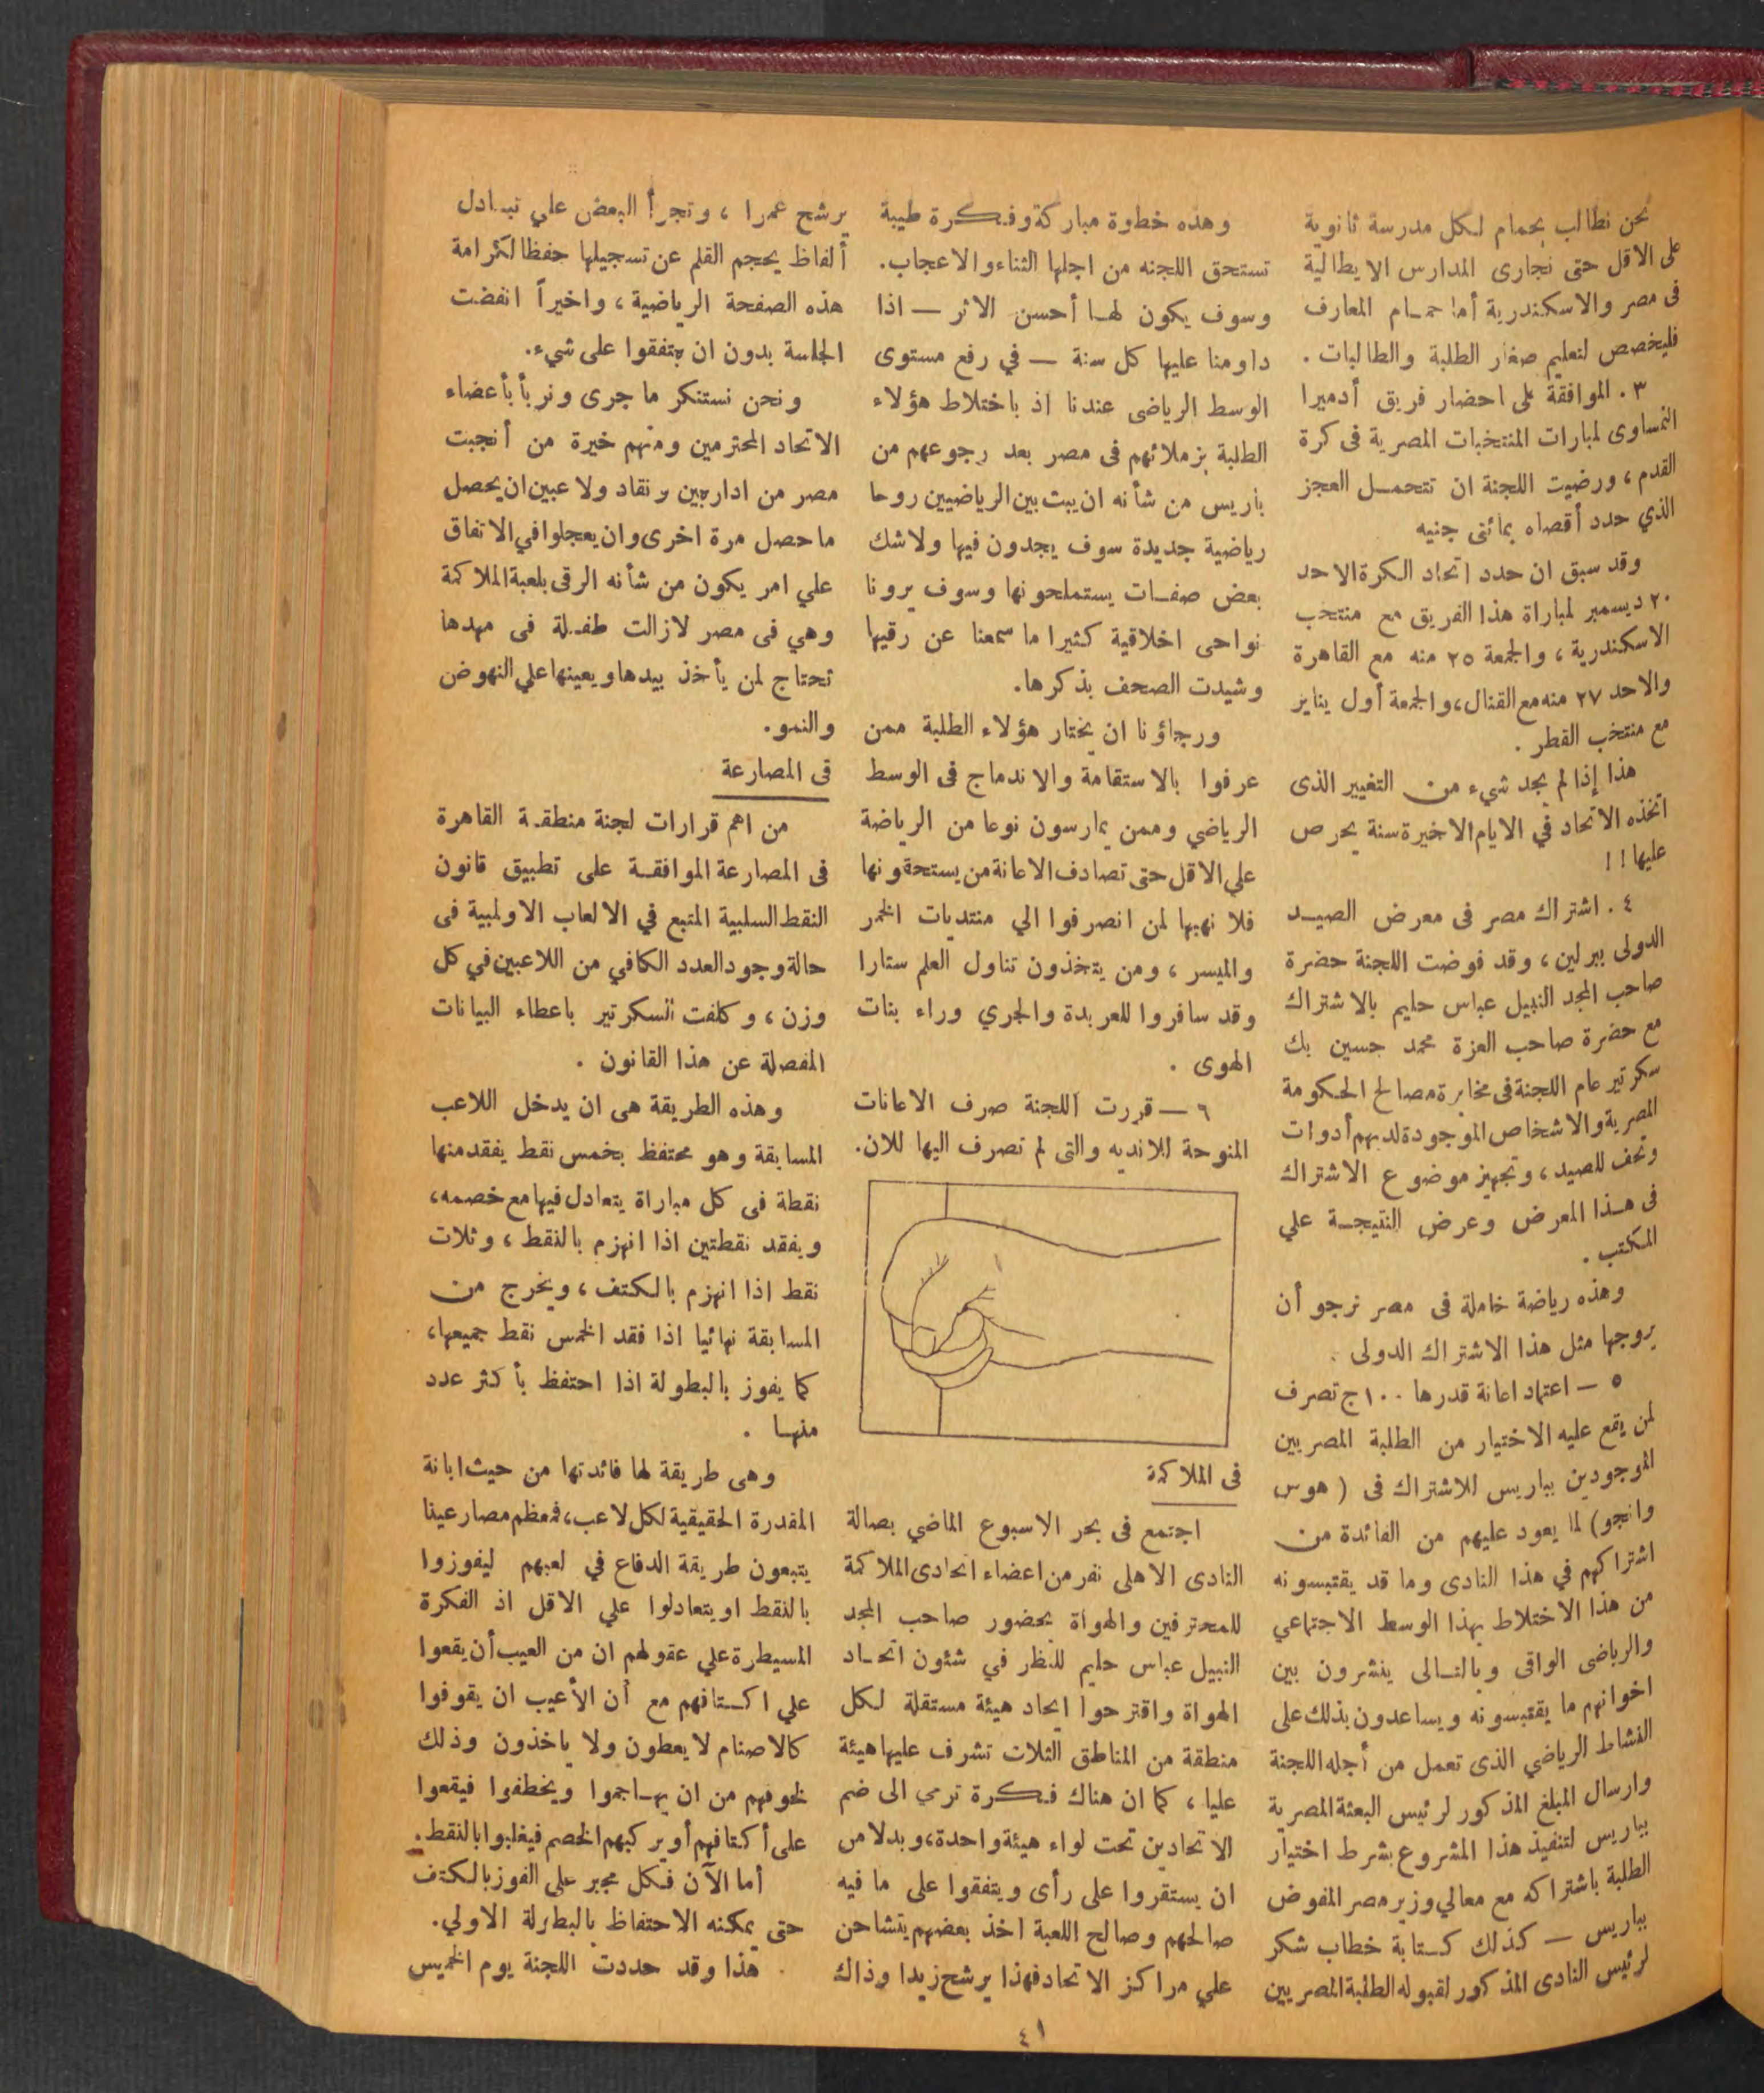 نحن نطالب بحمام لكل مدرسة ثانوية
على الاقل حتى نجارى المدارس الايطالية
فى مصر والاسكندرية أما حمام المعارف
فليخصص لتعليم صغار الطلبة والطالبات .
٣ . الموافقة على احضار فريق أدميرا
النمساوى لمبارات المنتخبات المصرية فى كرة
القدم ، ورضيت اللجنة ان تتحمل العجز
الذي حدد أقصاه بمائتى جنيه
وقد سبق ان حدد اتحاد الكرة الاحد
٢٠ ديسمبر لمباراة هذا الفريق مع منتخب
الاسكندرية ، والجمعة ٢٥ منه مع القاهرة
والاحد ٢٧ منه مع القنال ، والجمعة أول يناير
مع منتخب القطر .
هذا إذا لم يجد شيء من التغيير الذى
اتخذه الاتحاد في الايام الاخيرة سنة يحرص
عليها ! !
٤ . اشتراك مصر فى معرض الصيد
الدولى ببرلين ، وقد فوضت اللجنة حضرة
صاحب المجد النبيل عباس حليم بالاشتراك
مع حضرة صاحب العزة محمد حسين بك
سكرتير عام اللجنة فى مخابرة مصالح الحكومة
المصرية والاشخاص الموجودة لديهم أدوات
وتحف للصيد ، وتجهيز موضوع الاشتراك
فى هذا المعرض وعرض النتيجة علي
المكتب .
وهذه رياضة خاملة فى مصر نرجو أن
يروجها مثل هذا الاشتراك الدولى .
٥ — اعتماد اعانة قدرها ١٠٠ ج تصرف
لمن يقع عليه الاختيار من الطلبة المصريين
الموجودين بباريس للاشتراك فى ( هوس
وانجو ) لما يعود عليهم من الفائدة من
اشتراكهم في هذا النادى وما قد يقتبسونه
من هذا الاختلاط بهذا الوسط الاجتماعي
والرياضى الراقى وبالتالى ينشرون بين
اخوانهم ما يقتبسونه ويساعدون بذلك على
النشاط الرياضي الذى تعمل من أجله اللجنة
وارسال المبلغ المذكور لرئيس البعثة المصرية
بباريس لتنفيذ هذا المشروع بشرط اختيار
الطلبة باشتراكه مع معالي وزير مصر المفوض
بباريس — كذلك كتابة خطاب شكر
لرئيس النادى المذكور لقبوله الطلبة المصريين
وهذه خطوة مباركة وفكرة طيبة
تستحق اللجنه من اجلها الثناء والاعجاب .
وسوف يكون لها أحسن الاثر — اذا
داومنا عليها كل سنة — في رفع مستوى
الوسط الرياضى عندنا اذ باختلاط هؤلاء
الطلبة بزملائهم فى مصر بعد رجوعهم من
باريس من شأنه ان يبث بين الرياضيين روحا
رياضية جديدة سوف يجدون فيها ولاشك
بعض صفات يستملحونها وسوف يرونا
نواحى اخلاقية كثيرا ما سمعنا عن رقيها
وشيدت الصحف بذكرها .
ورجاؤنا ان يختار هؤلاء الطلبة ممن
عرفوا بالاستقامة والاندماج فى الوسط
الرياضي وممن يمارسون نوعا من الرياضة
علي الاقل حتى تصادف الاعانة من يستحقونها
فلا نهبها لمن انصرفوا الي منتديات الخمر
والميسر ، ومن يتخذون تناول العلم ستارا
وقد سافروا للعربدة والجري وراء بنات
الهوى .
٦ — قررت اللجنة صرف الاعانات
المنوحة للانديه والتى لم تصرف اليها للان .
فى الملاكمة
اجتمع فى بحر الاسبوع الماضي بصالة
النادى الاهلى نفر من اعضاء اتحادى الملاكمة
للمحترفين والهواة بحضور صاحب المجد
النبيل عباس حليم للنظر في شئون اتحاد
الهواة واقترحوا ايجاد هيئة مستقلة لكل
منطقة من المناطق الثلاث تشرف عليها هيئة
عليا ، كما ان هناك فكرة ترمي الى ضم
الاتحادين تحت لواء هيئة واحدة ، وبدلا من
ان يستقروا على رأى ويتفقوا على ما فيه
صالحهم وصالح اللعبة اخذ بعضهم يتشاحن
علي مراكز الاتحاد فهذا يرشح زيدا وذاك
يرشح عمرا ، وتجرأ البعض علي تبادل
ألفاظ يحجم القلم عن تسجيلها حفظا لكرامة
هذه الصفحة الرياضية ، واخيراً انفضت
الجلسة بدون ان يتفقوا على شيء .
ونحن نستنكر ما جرى ونربأ بأعضاء
الاتحاد المحترمين ومنهم خيرة من أنجبت
مصر من اداريين ونقاد ولاعبين ان يحصل
ما حصل مرة اخرى وان يعجلوا في الاتفاق
علي امر يكون من شأنه الرقى بلعبة الملاكمة
وهي فى مصر لازالت طفلة فى مهدها
تحتاج لمن يأخذ بيدها ويعينها علي النهوض
والنمو .
فى المصارعة
من اهم قرارات لجنة منطقة القاهرة
فى المصارعة الموافقة على تطبيق قانون
النقط السلبية المتبع في الالعاب الاولمبية فى
حالة وجود العدد الكافي من اللاعبين في كل
وزن ، وكلفت السكرتير باعطاء البيانات
المفصلة عن هذا القانون .
وهذه الطريقة هى ان يدخل اللاعب
المسابقة وهو محتفظ بخمس نقط يفقد منها
نقطة فى كل مباراة يتعادل فيها مع خصمه ،
ويفقد نقطتين اذا انهزم بالنقط ، وثلاث
نقط اذا انهزم بالكتف ، ويخرج من
المسابقة نهائيا اذا فقد الخمس نقط جميعها ،
كما يفوز بالبطولة اذا احتفظ بأكثر عدد
منها .
وهى طريقة لها فائدتها من حيث ابانة
المقدرة الحقيقية لكل لاعب ، فمعظم مصارعينا
يتبعون طريقة الدفاع في لعبهم ليفوزوا
بالنقط او يتعادلوا علي الاقل اذ الفكرة
المسيطرة علي عقولهم ان من العيب أن يقعوا
علي اكتافهم مع أن الأعيب ان يقوفوا
كالاصنام لا يعطون ولا ياخذون وذلك
لخوفهم من ان يهاجموا ويخطفوا فيقعوا
على أكتافهم أو يركبهم الخصم فيغلبوا بالنقط .
أما الآن فكل مجبر على الفوز بالكتف
حتى يمكنه الاحتفاظ بالبطولة الاولي .
هذا وقد حددت اللجنة يوم الخميس
٤١